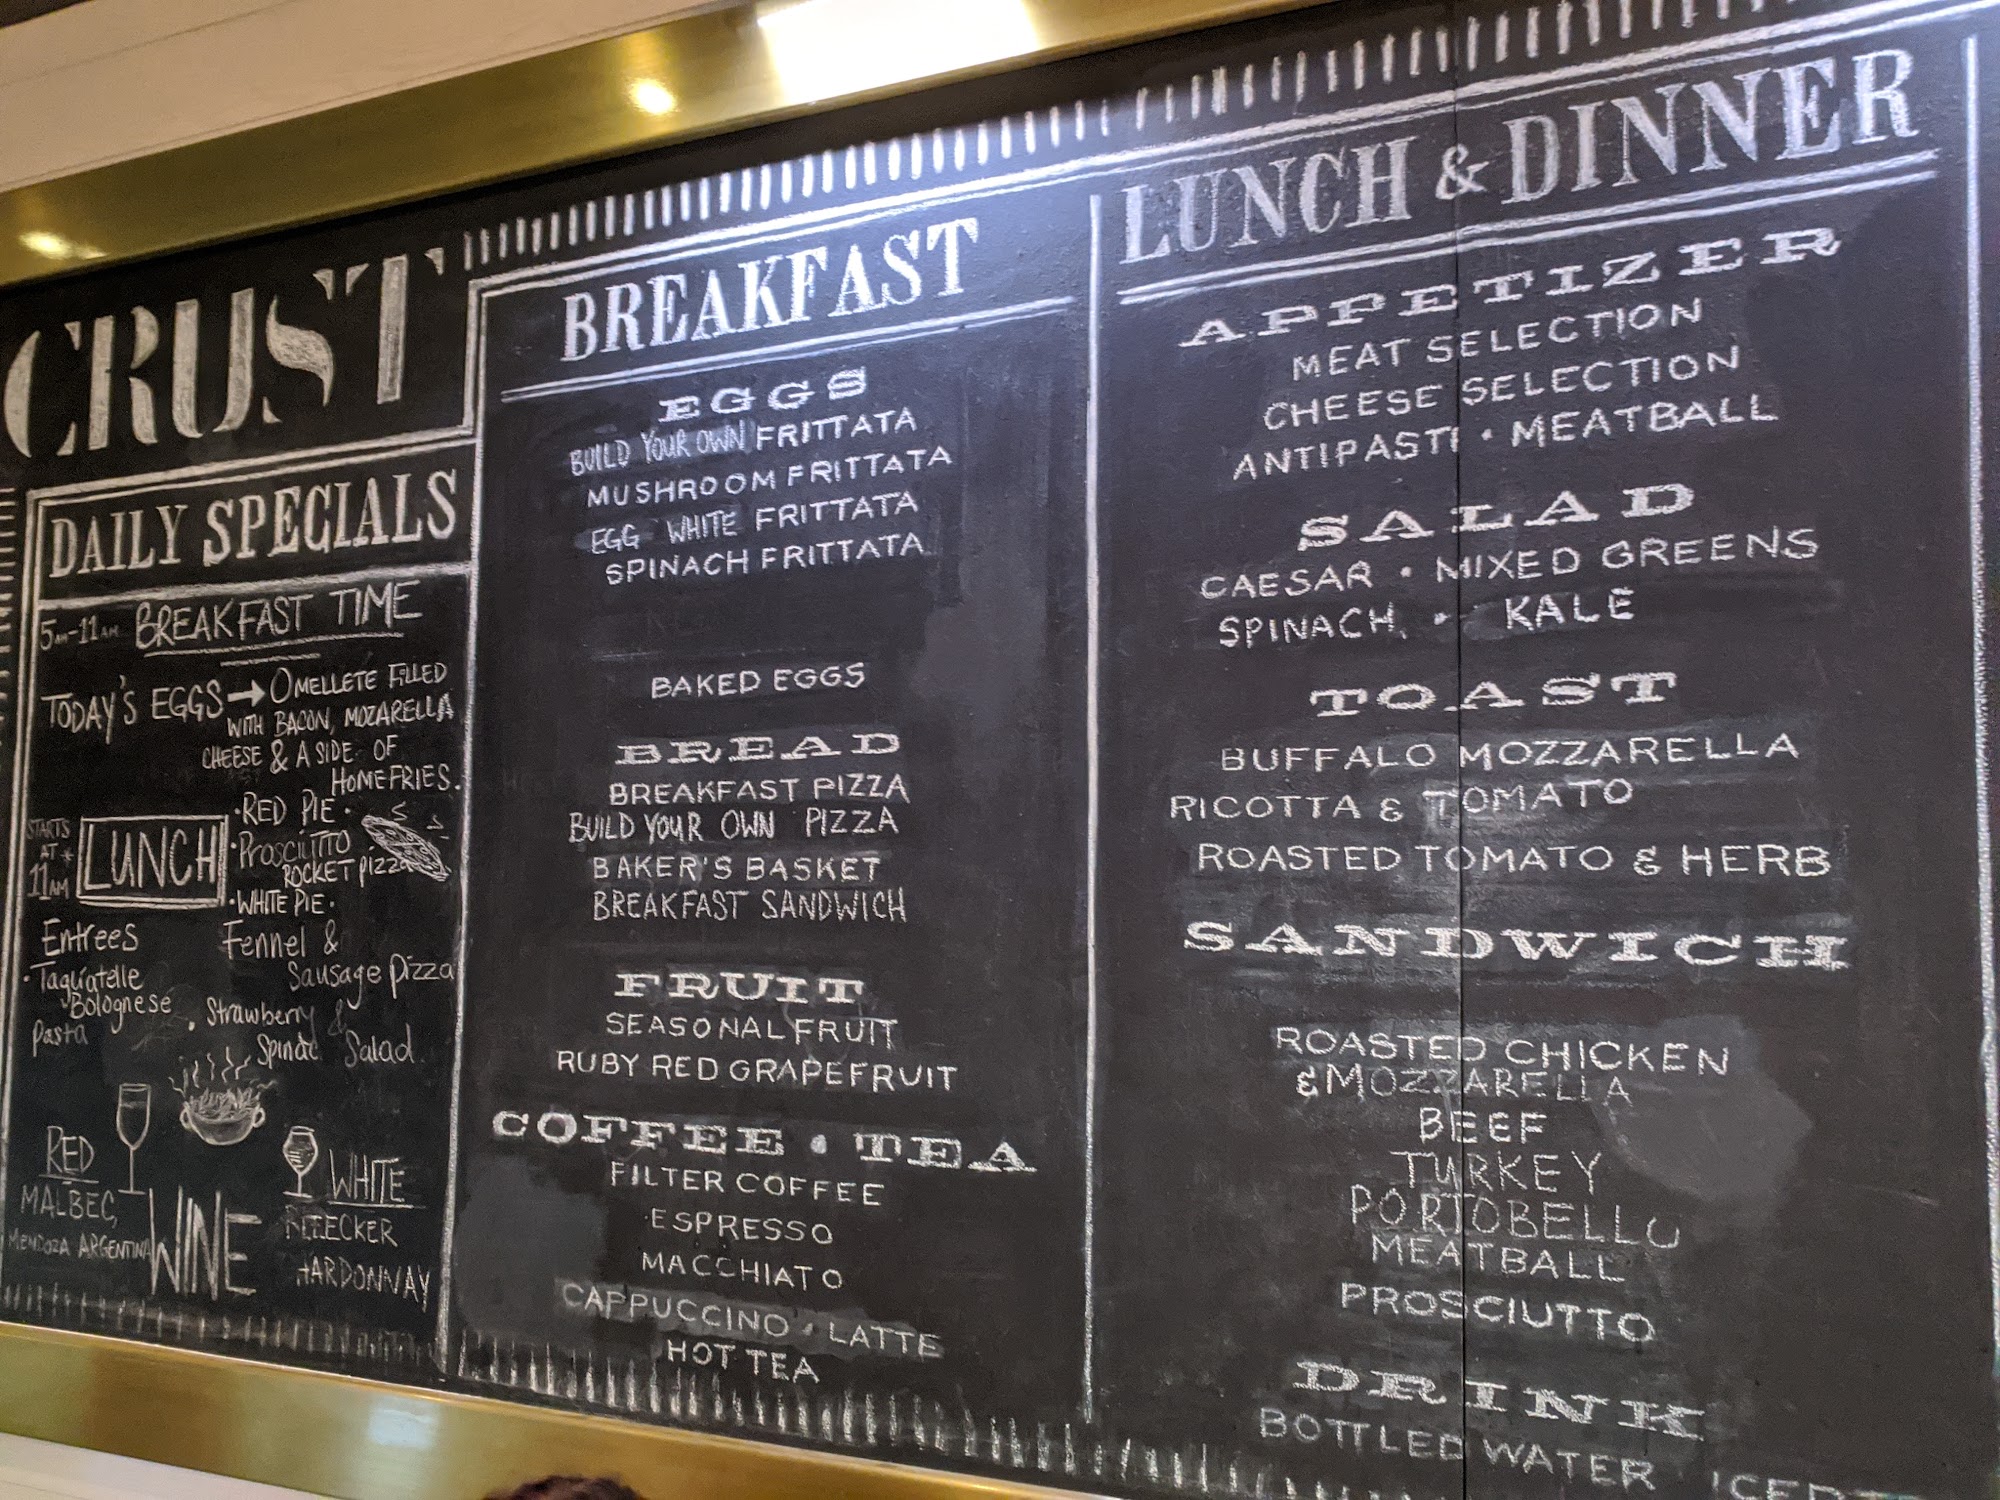 CRUST
DAILY SPECIALS
5AM-11AM BREAKFAST TIME
TODAY'S EGGS → OMELLETE FILLED
WITH BACON, MOZARELLA
CHEESE & A SIDE OF
HOMEFRIES.
STARTS
AT
11AM
LUNCH
· RED PIE ·
· Prosciutto
ROCKET pizza
· WHITE PIE ·
Fennel &
Sausage pizza
Entrees
· Tagliatelle
Bolognese
pasta
· Strawberry &
Salad
RED
MALBEC,
MENDOZA ARGENTINA
WINE
WHITE
BLEECKER
HARDONNAY
BREAKFAST
EGGS
BUILD YOUR OWN FRITTATA
MUSHROOM FRITTATA
EGG WHITE FRITTATA
SPINACH FRITTATA
BAKED EGGS
BREAD
BREAKFAST PIZZA
BUILD YOUR OWN PIZZA
BAKER'S BASKET
BREAKFAST SANDWICH
FRUIT
SEASONAL FRUIT
RUBY RED GRAPEFRUIT
COFFEE · TEA
FILTER COFFEE
ESPRESSO
MACCHIATO
CAPPUCCINO · LATTE
HOT TEA
LUNCH & DINNER
APPETIZER
MEAT SELECTION
CHEESE SELECTION
ANTIPASTI · MEATBALL
SALAD
CAESAR · MIXED GREENS
SPINACH · KALE
TOAST
BUFFALO MOZZARELLA
RICOTTA & TOMATO
ROASTED TOMATO & HERB
SANDWICH
ROASTED CHICKEN
& MOZZARELLA
BEEF
TURKEY
PORTOBELLO
MEATBALL
PROSCIUTTO
DRINK
BOTTLED WATER ICED